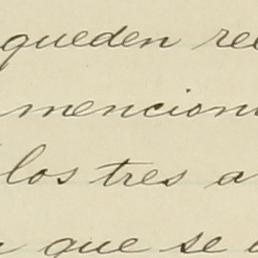 queden re
mencion
los tres a
que se